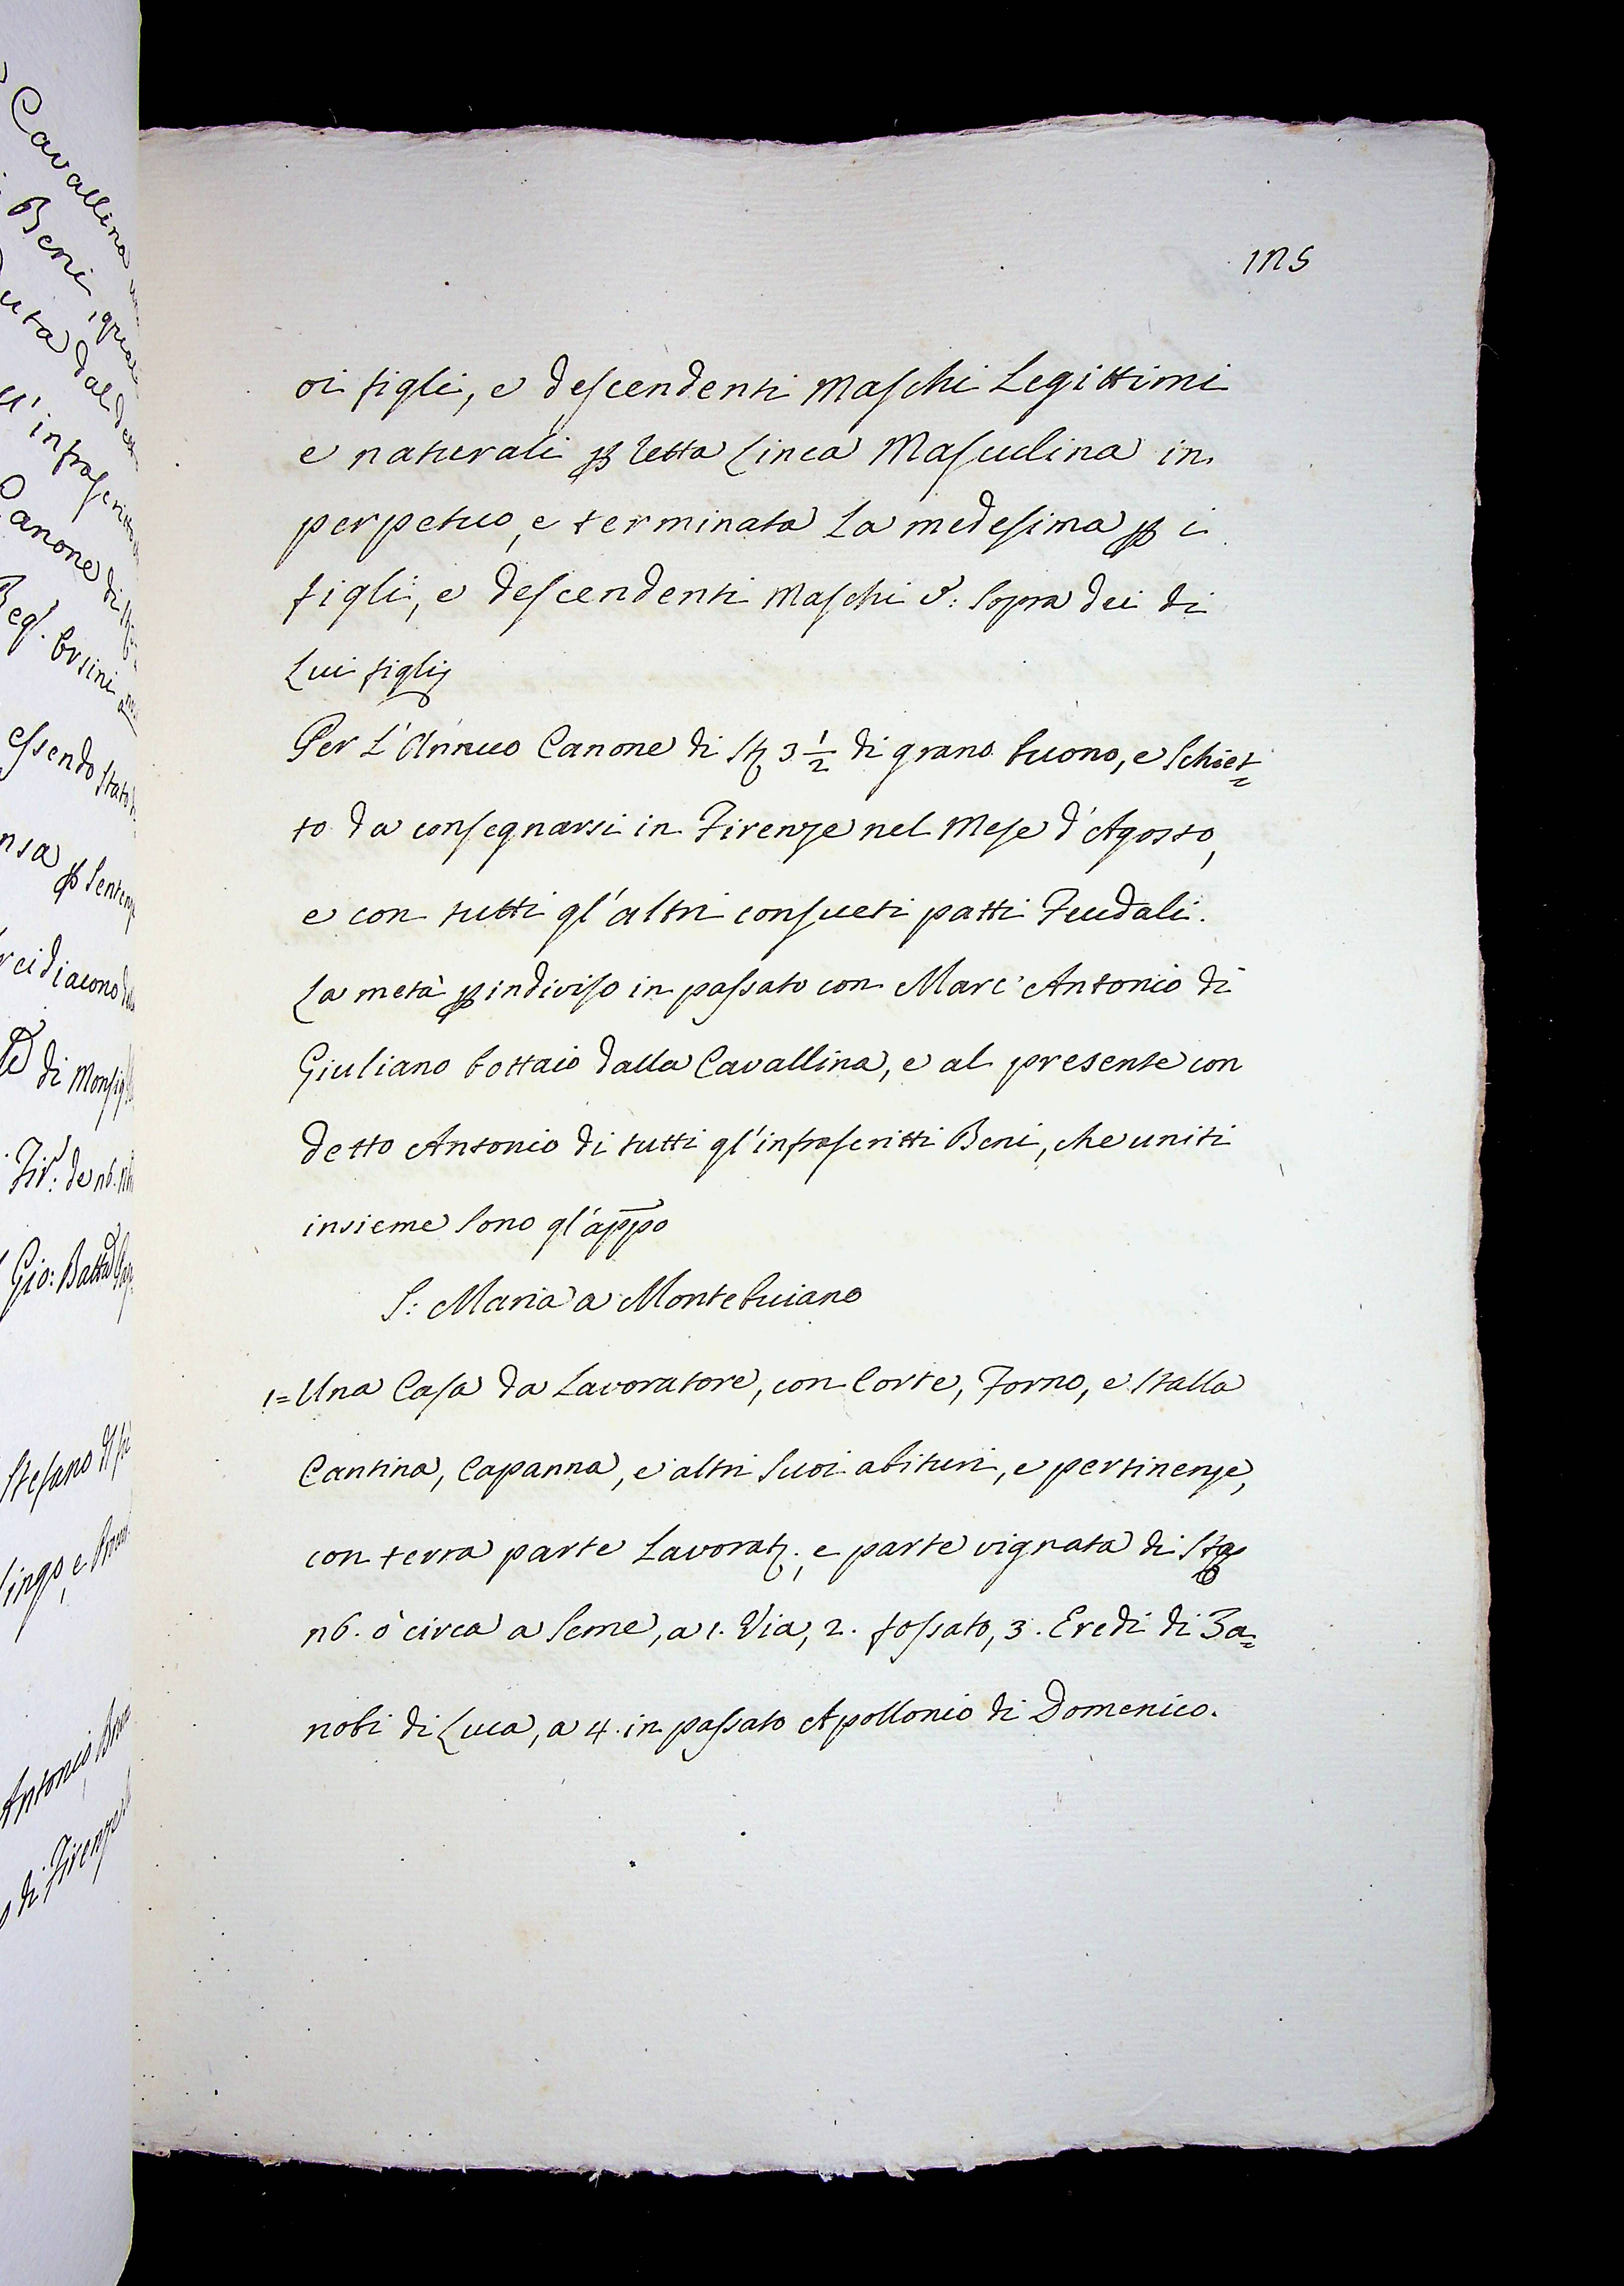 175
oi figli, e descendenti Maschi Legittimi
e naturali p retta Linea Masculina in
perpetuo, e terminata La medesima p i
figli, e descendenti Maschi c: Sopra dei di
Lui figli
Per L'Annuo Canone di St 3 1/2 di grano buono, e Schiet=
to da consegnarsi in Firenze nel Mese d'Agosto,
e con tutti gl'altri consueti patti Feudali.
La metà p indiviso in passato con Marc'Antonio di
Giuliano bottaio dalla Cavallina, e al presente con
detto Antonio di tutti gl'infrascritti Beni, che uniti
insieme Sono gl'appo
S: Maria a Montebuiano
1= Una Casa da Lavoratore, con Corte, Forno, e Stalla
Cantina, Capanna, e altri Suoi abituri, e pertinenze,
con terra parte Lavorat; e parte vignata di Sta
n6. ò circa a Seme, a 1. Via, 2. fossato, 3. Eredi di Za=
nobi di Luca, a 4. in passato Apollonio di Domenico.
Cavallina
Beni, qua
uta dal det
Canone di
essendo stato
nsa p Senten
rcidiacono
di Monsig
Fir: de n6.
Gio: Batta
Stefano
Antonio
di Firenze